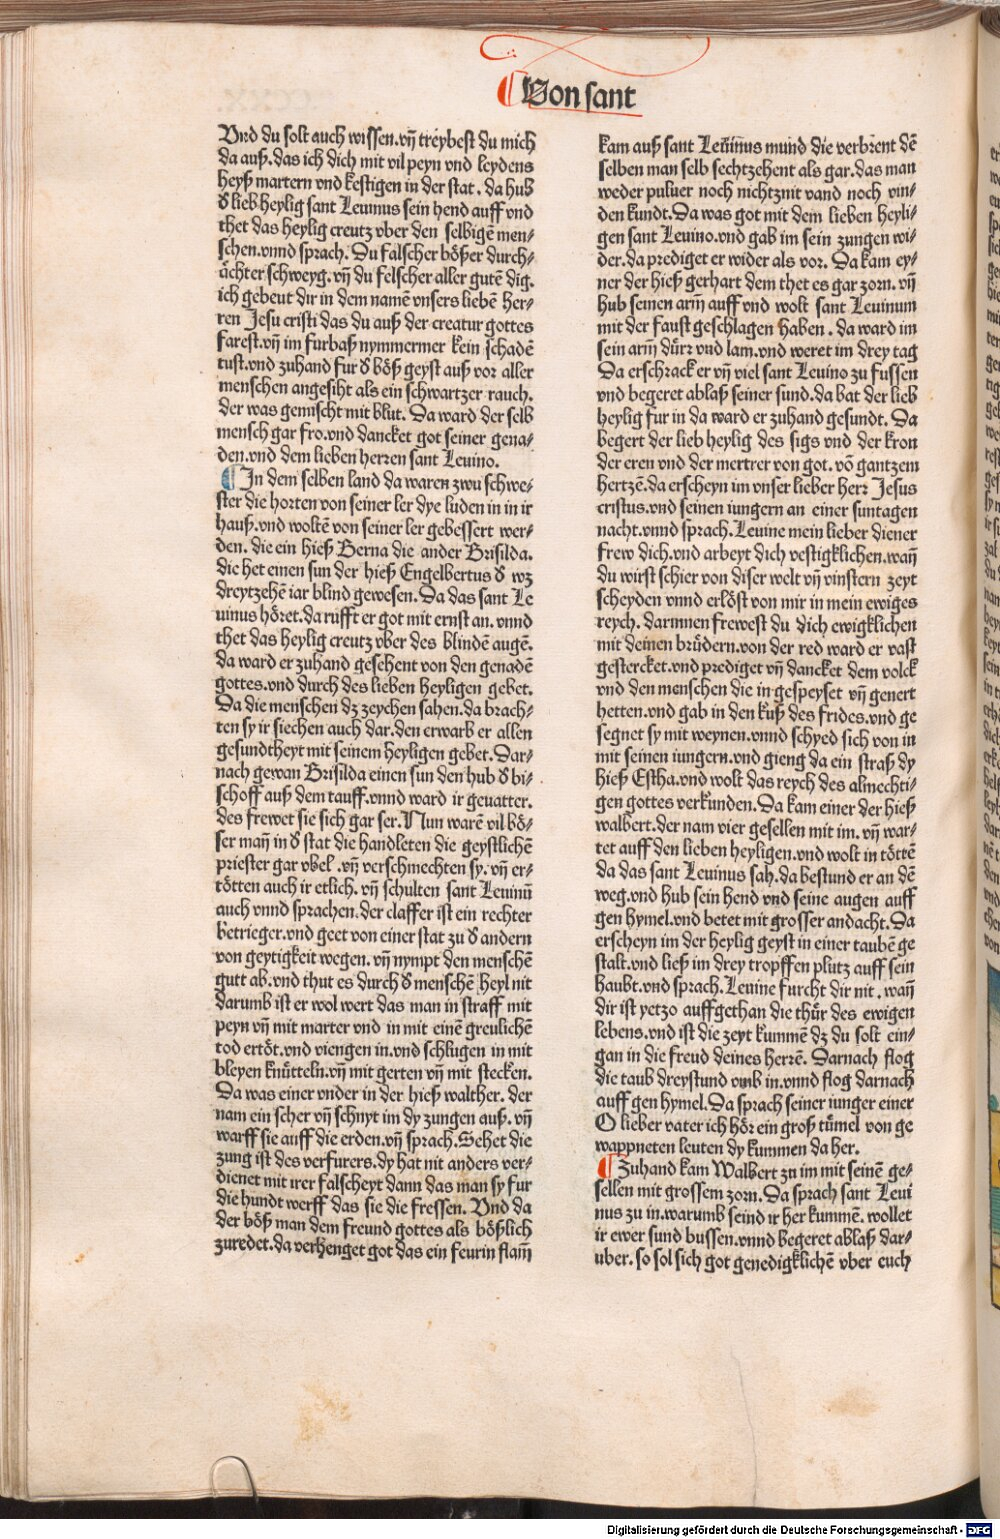 Von sant
Vnd du solt auch wissen. vñ treybest du mich
da auß. das ich dich mit vil peyn vnd leydens
heyß martern vnd kestigen in der stat. da hub
d lieb heylig sant Leuinus sein hend auff vnd
thet das heylig creutz vber den selbigē men⸗
schen. vnnd sprach. Du falscher bößer durch⸗
ächter schweyg. vñ du felscher aller gutē dig.
ich gebeut dir in dem namē vnsers liebē her⸗
ren Jesu cristi das du auß der creatur gottes
farest. vñ im furbaß nymmermer kein schadē
tust. vnd zuhand fur d böß geyst auß vor aller
menschen angesiht als ein schwartzer rauch.
der was gemischt mit blut. Da ward der selb
mensch gar fro. vnd dancket got seiner gena⸗
den. vnd dem lieben herren sant Leuino.
In dem selben land da waren zwu schwe⸗
ster die horten von seiner ler dye luden in in ir
hauß. vnd woltē von seiner ler gebessert wer⸗
den. die ein hieß Berna die ander Brisilda.
die het einen sun der hieß Engelbertus d wz
dreytzehē iar blind gewesen. Da das sant Le
uinus höret. da rüfft er got mit ernst an. vnnd
thet das heylig creutz vber des blindē augē.
da ward er zuhand gesehent von den genadē
gottes. vnd durch des lieben heyligen gebet.
Da die menschen dz zeychen sahen. da brach⸗
ten sy ir siechen auch dar. den erwarb er allen
gesundtheyt mit seinem heyligen gebet. Dar⸗
nach gewan Brisilda einen sun den hub d bi⸗
schoff auß dem tauff. vnnd ward ir geuatter.
des frewet sie sich gar ser. Nun warē vil bö⸗
ser mañ in d stat die handleten die geystlichē
priester gar vbel. vñ verschmechten sy. vñ er⸗
tötten auch ir etlich. vñ schulten sant Leuinū
auch vnnd sprachen. der claffer ist ein rechter
betrieger. vnd geet von einer stat zu d andern
von geytigkeit wegen. vñ nympt den menschē
gutt ab. vnd thut es durch d menschē heyl nit
darumb ist er wol wert das man in straff mit
peyn vñ mit marter vnd in mit einē greulichē
tod ertöt. vnd viengen in. vnd schlugen in mit
bleyen knütteln. vñ mit gerten vñ mit stecken.
Da was einer vnder in der hieß walther. der
nam ein scher vñ schnyt im dy zungen auß. vñ
warff sie auff die erden. vñ sprach. Sehet die
zung ist des verfurers. dy hat nit anders ver⸗
dienet mit irer falscheyt dann das man sy fur
die hundt werff das sie die fressen. Vnd da
der böß man dem freund gottes als bößlich
zuredet. da verhenget got das ein feurin flam̄
kam auß sant Leuinus mund die verbrent dē
selben man selb sechtzehent als gar. das man
weder puluer noch nichtznit vand noch vin⸗
den kundt. Da was got mit dem lieben heyli⸗
gen sant Leuino. vnd gab im sein zungen wi⸗
der. da prediget er wider als vor. Da kam ey⸗
ner der hieß gerhart dem thet es gar zorn. vñ
hub seinen arm̄ auff vnd wolt sant Leuinum
mit der faust geschlagen haben. da ward im
sein arm̄ dürz vnd lam. vnd weret im drey tag
Da erschrack er vñ viel sant Leuino zu fussen
vnd begeret ablaß seiner sund. da bat der lieb
heylig fur in da ward er zuhand gesundt. Da
begert der lieb heylig des sigs vnd der kron
der eren vnd der mertrer von got. vō gantzem
hertzē. da erscheyn im vnser lieber herr Jesus
cristus. vnd seinen iungern an einer suntagen
nacht. vnnd sprach. Leuine mein lieber diener
frew dich. vnd arbeyt dich vestigklichen. wañ
du wirst schier von diser welt vñ vinstern zeyt
scheyden vnnd erlöst von mir in mein ewiges
reych. darinnen frewest du dich ewigklichen
mit deinen brüdern. von der red ward er vast
gestercket. vnd prediget vñ dancket dem volck
vnd den menschen die in gespeyset vñ genert
hetten. vnd gab in den kuß des frides. vnd ge
segnet sy mit weynen. vnnd schyed sich von in
mit seinen iungern. vnd gieng da ein straß dy
hieß Estha. vnd wolt das reych des almechti⸗
gen gottes verkunden. Da kam einer der hieß
walbert. der nam vier gesellen mit im. vñ war⸗
tet auff den lieben heyligen. vnd wolt in töttē
da das sant Leuinus sah. da bestund er an dē
weg. vnd hub sein hend vnd seine augen auff
gen hymel. vnd betet mit grosser andacht. Da
erscheyn im der heylig geyst in einer taubē ge
stalt. vnd ließ im drey tropffen plutz auff sein
haubt. vnd sprach. Leuine furcht dir nit. wañ
dir ist yetzo auffgethan die thür des ewigen
lebens. vnd ist die zeyt kummē dz du solt ein⸗
gan in die freud deines herrē. Darnach flog
die taub dreystund vmb in. vnnd flog darnach
auff gen hymel. Da sprach seiner iunger einer
O lieber vater ich hör ein groß tümel von ge
wappneten leuten dy kummen da her.
Zuhand kam Walbert zu im mit seinē ge⸗
sellen mit grossem zorn. Da sprach sant Leui
nus zu in. warumb seind ir her kummē. wollet
ir ewer sund bussen. vnnd begeret ablaß dar⸗
uber. so sol sich got genedigklichē vber euch
Digitalisierung gefördert durch die Deutsche Forschungsgemeinschaft - DFG